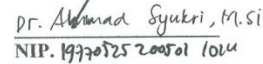 Dr. Ahmad Syukri, M.Si
NIP. 19770525 200501 1024